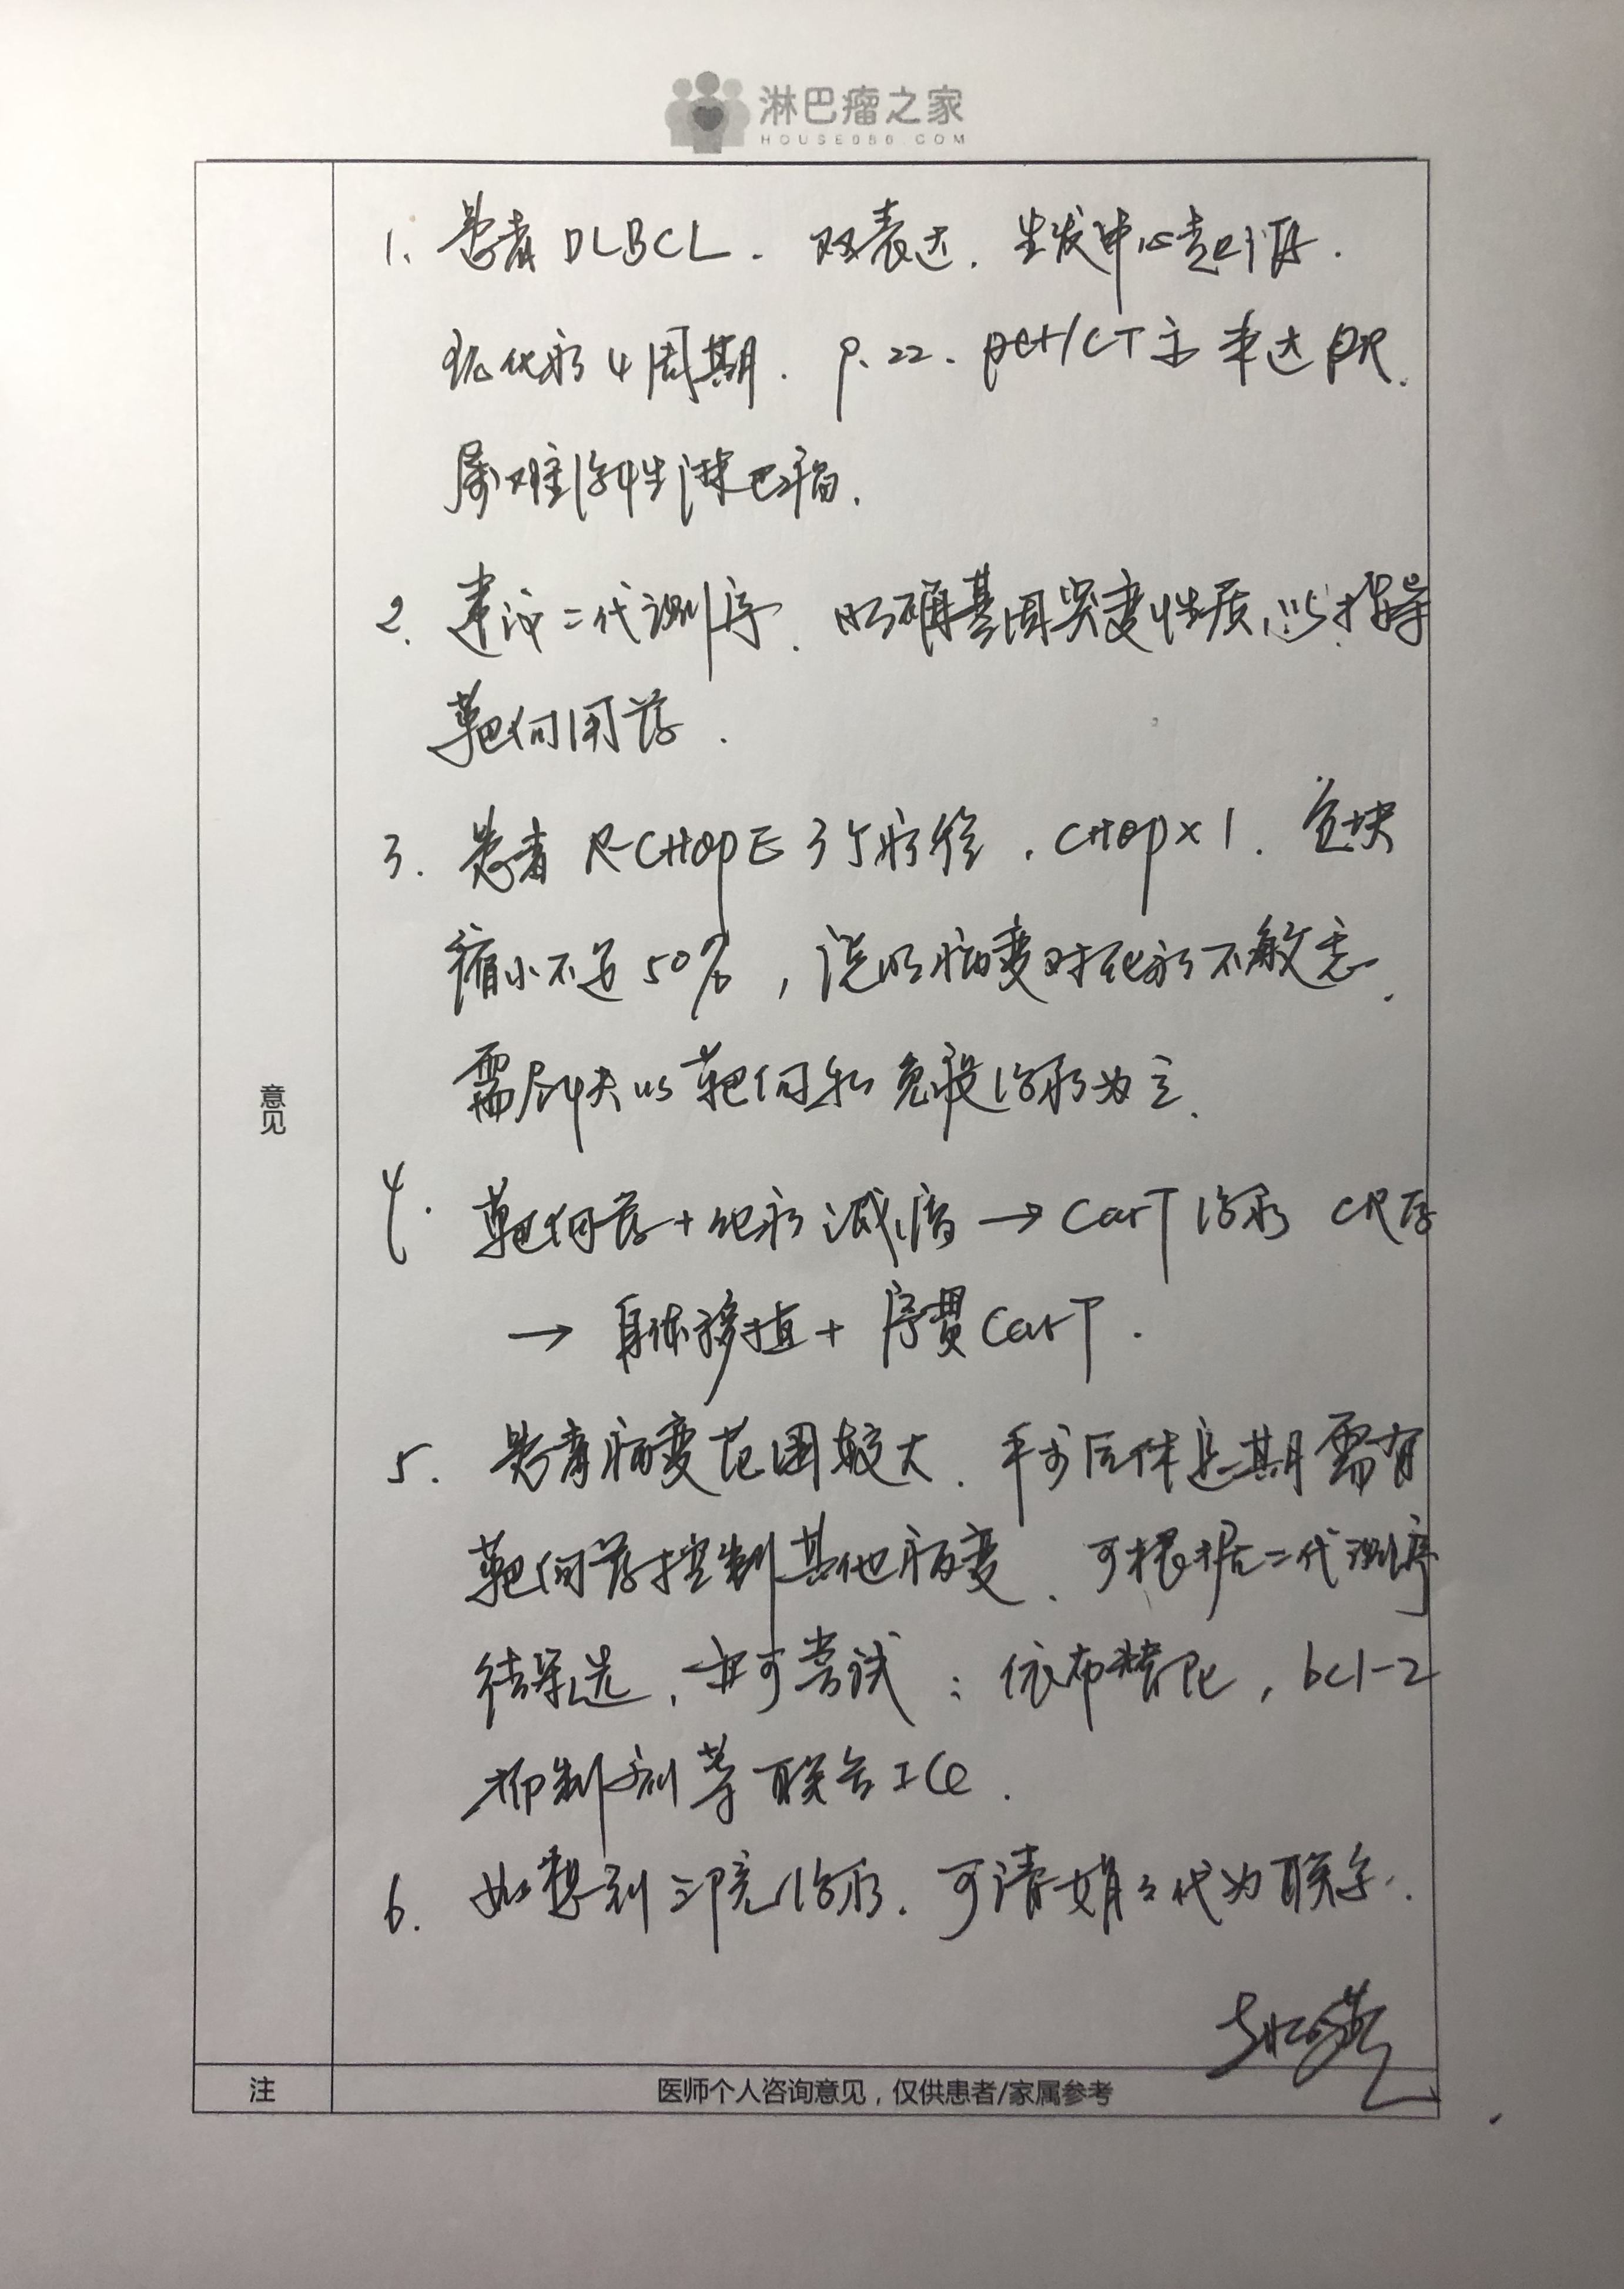 淋巴瘤之家
HOUSE086.COM
1. 患者DLBCL. 双表达. 生发中心起源.
现化疗4周期. 9.22. PET/CT示未达PR.
属难治性淋巴瘤.
2. 建议二代测序. 明确基因突变性质,以指导
靶向用药.
3. 患者R-CHOPE 3个疗程. CHOP×1. 包块
缩小不足50%, 说明病变对化疗不敏感.
需尽快以靶向和免疫治疗为主.
4. 靶向药+化疗减瘤→CarT治疗 CR后
→自体移植+序贯CarT.
5. 患者病变范围较大. 手术后休息期需有
靶向药控制其他病变. 可根据二代测序
结果选, 亦可尝试: 依布替尼, bcl-2
抑制剂等联合ICE.
6. 如想到我院治疗. 可请娟子代为联系.
意见
注
医师个人咨询意见，仅供患者/家属参考